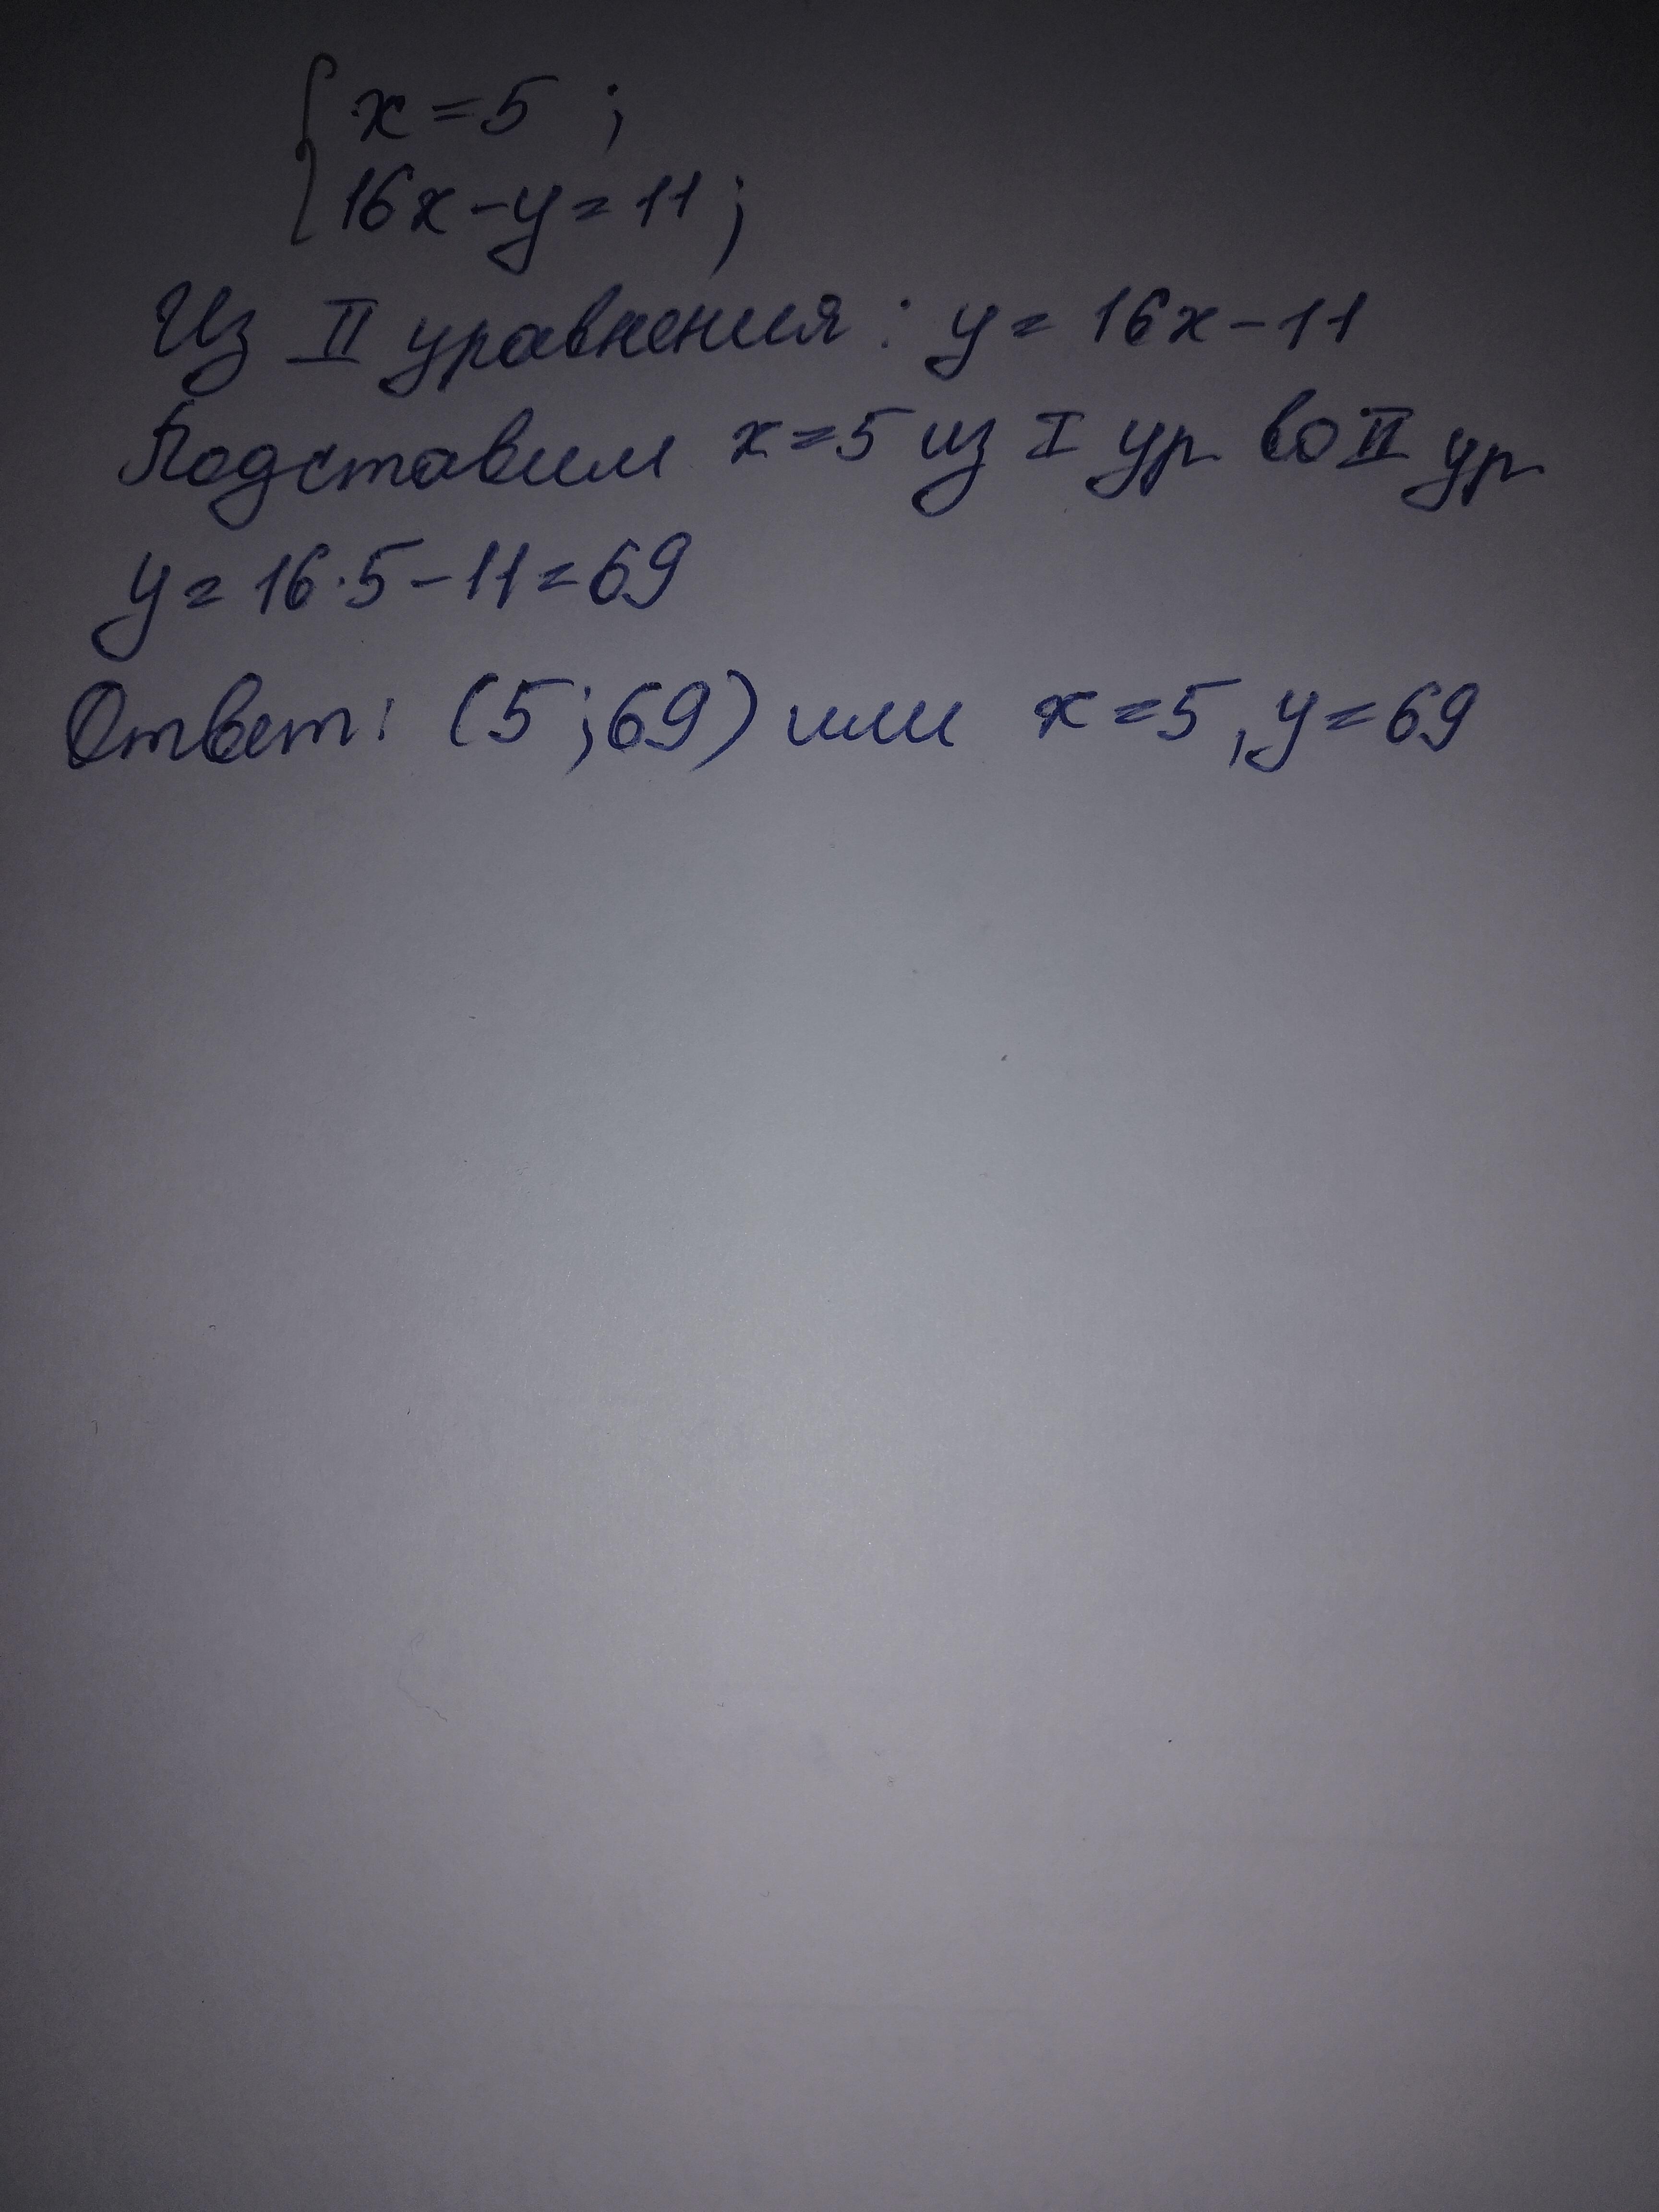 { x = 5 ;
16x - y = 11 ;
Из II уравнения : y = 16x - 11
Подставим x = 5 из I ур во II ур
y = 16·5 - 11 = 69
Ответ: (5 ; 69) или x = 5, y = 69